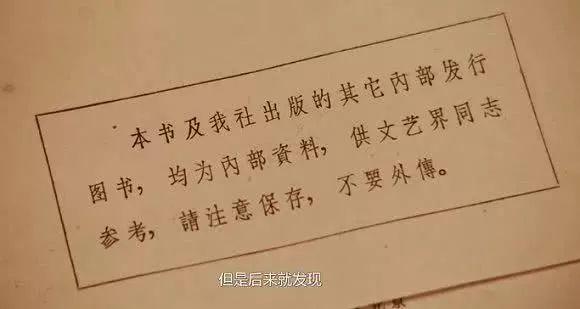 本书及我社出版的其它內部发行
图书，均为內部資料，供文艺界同志
参考，請注意保存，不要外傳。
但是后来就发现